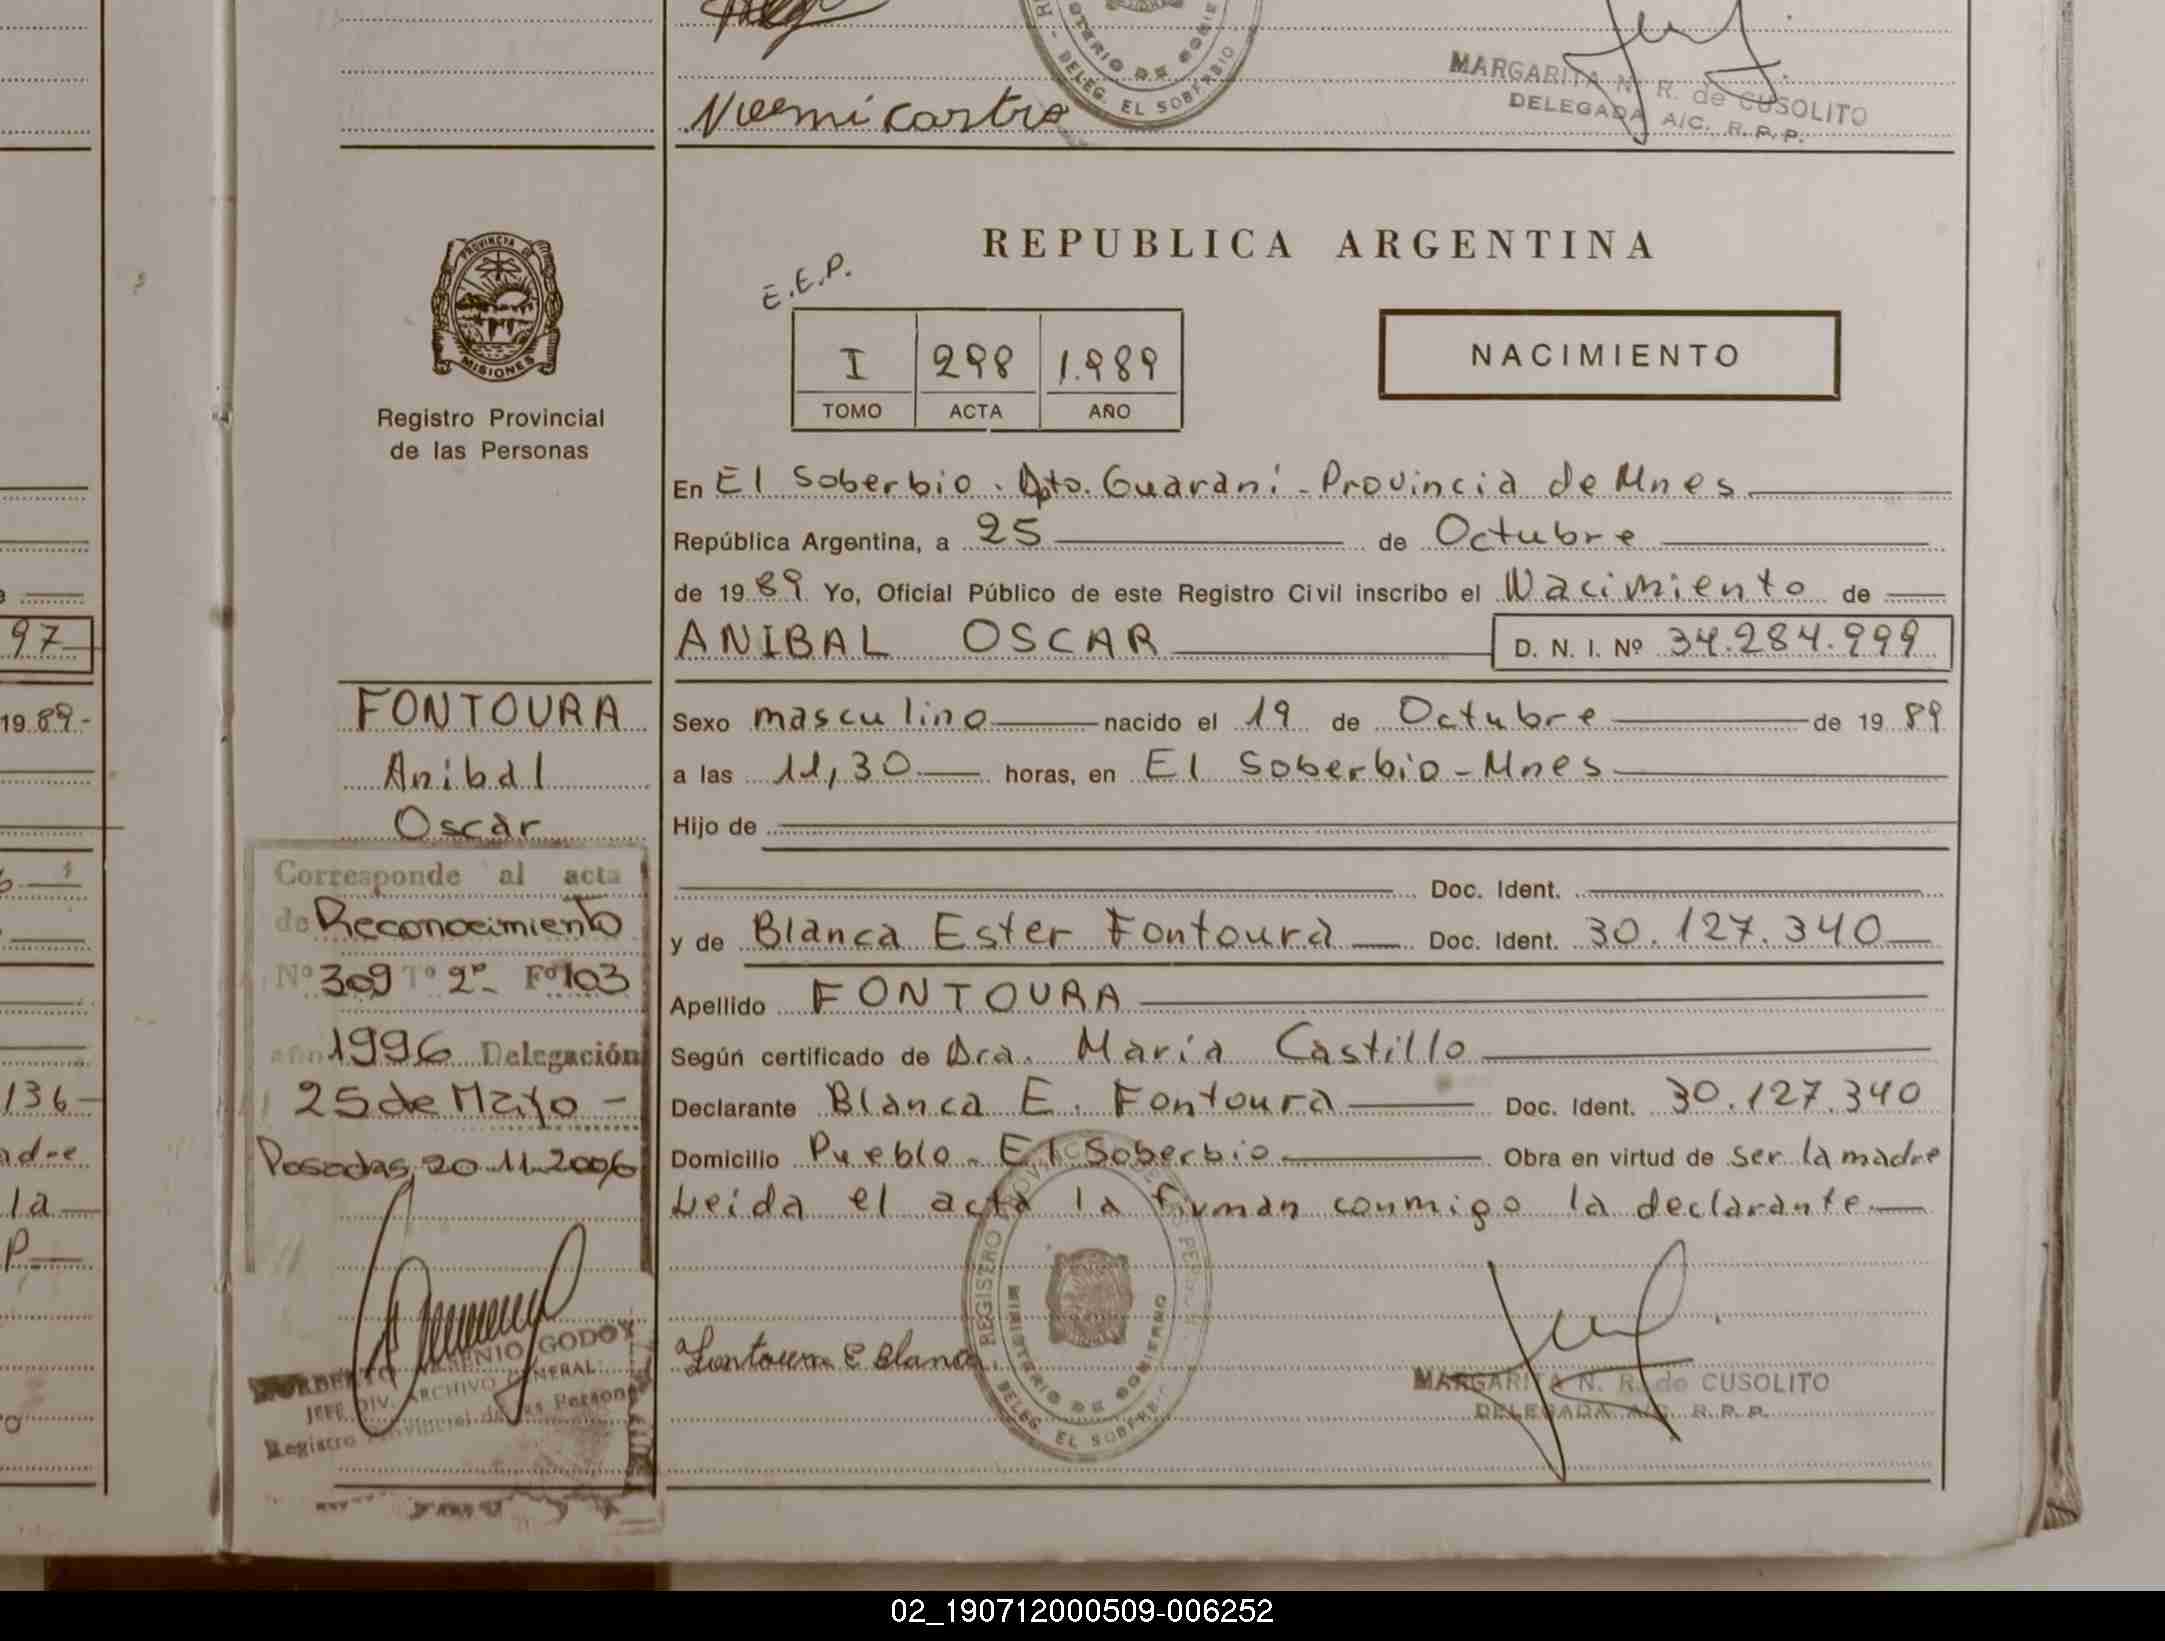 Noemi Castro
MARGARITA N. R. de CUSOLITO
DELEGADA A/C. R.P.P.
DELEG. EL SOBERBIO
PROVINCIA DE
MISIONES
Registro Provincial
de las Personas
REPUBLICA ARGENTINA
E.E.P.
I 298 1.989
TOMO ACTA AÑO
NACIMIENTO
En El Soberbio. Dpto. Guaraní - Provincia de Mnes
República Argentina, a 25 de Octubre
de 1989 Yo, Oficial Público de este Registro Civil inscribo el Nacimiento de
ANIBAL OSCAR D. N. I. Nº 34.284.999
FONTOURA
Anibal
Oscar
Corresponde al acta
de Reconocimiento
Nº 309 Tº 2º - Fº 103
año 1996 Delegación
25 de Mayo -
Posadas, 20.11.2006
NORBERTO ARSENIO GODOY
JEFE DIV. ARCHIVO GENERAL
Registro Provincial de las Personas
Sexo masculino nacido el 19 de Octubre de 1989
a las 11,30 horas, en El Soberbio - Mnes
Hijo de
Doc. Ident.
y de Blanca Ester Fontoura Doc. Ident. 30.127.340
Apellido FONTOURA
Según certificado de Dra. María Castillo
Declarante Blanca E. Fontoura Doc. Ident. 30.127.340
Domicilio Pueblo - El Soberbio Obra en virtud de ser la madre
Leida el acta la firman conmigo la declarante
Fontoura E Blanca
REGISTRO PROVINCIAL DE LAS PERSONAS
MINISTERIO DE GOBIERNO
DELEG. EL SOBERBIO
MARGARITA N. R. de CUSOLITO
DELEGADA A/C. R.P.P.
97
19 89-
136
la
P.
02_190712000509-006252